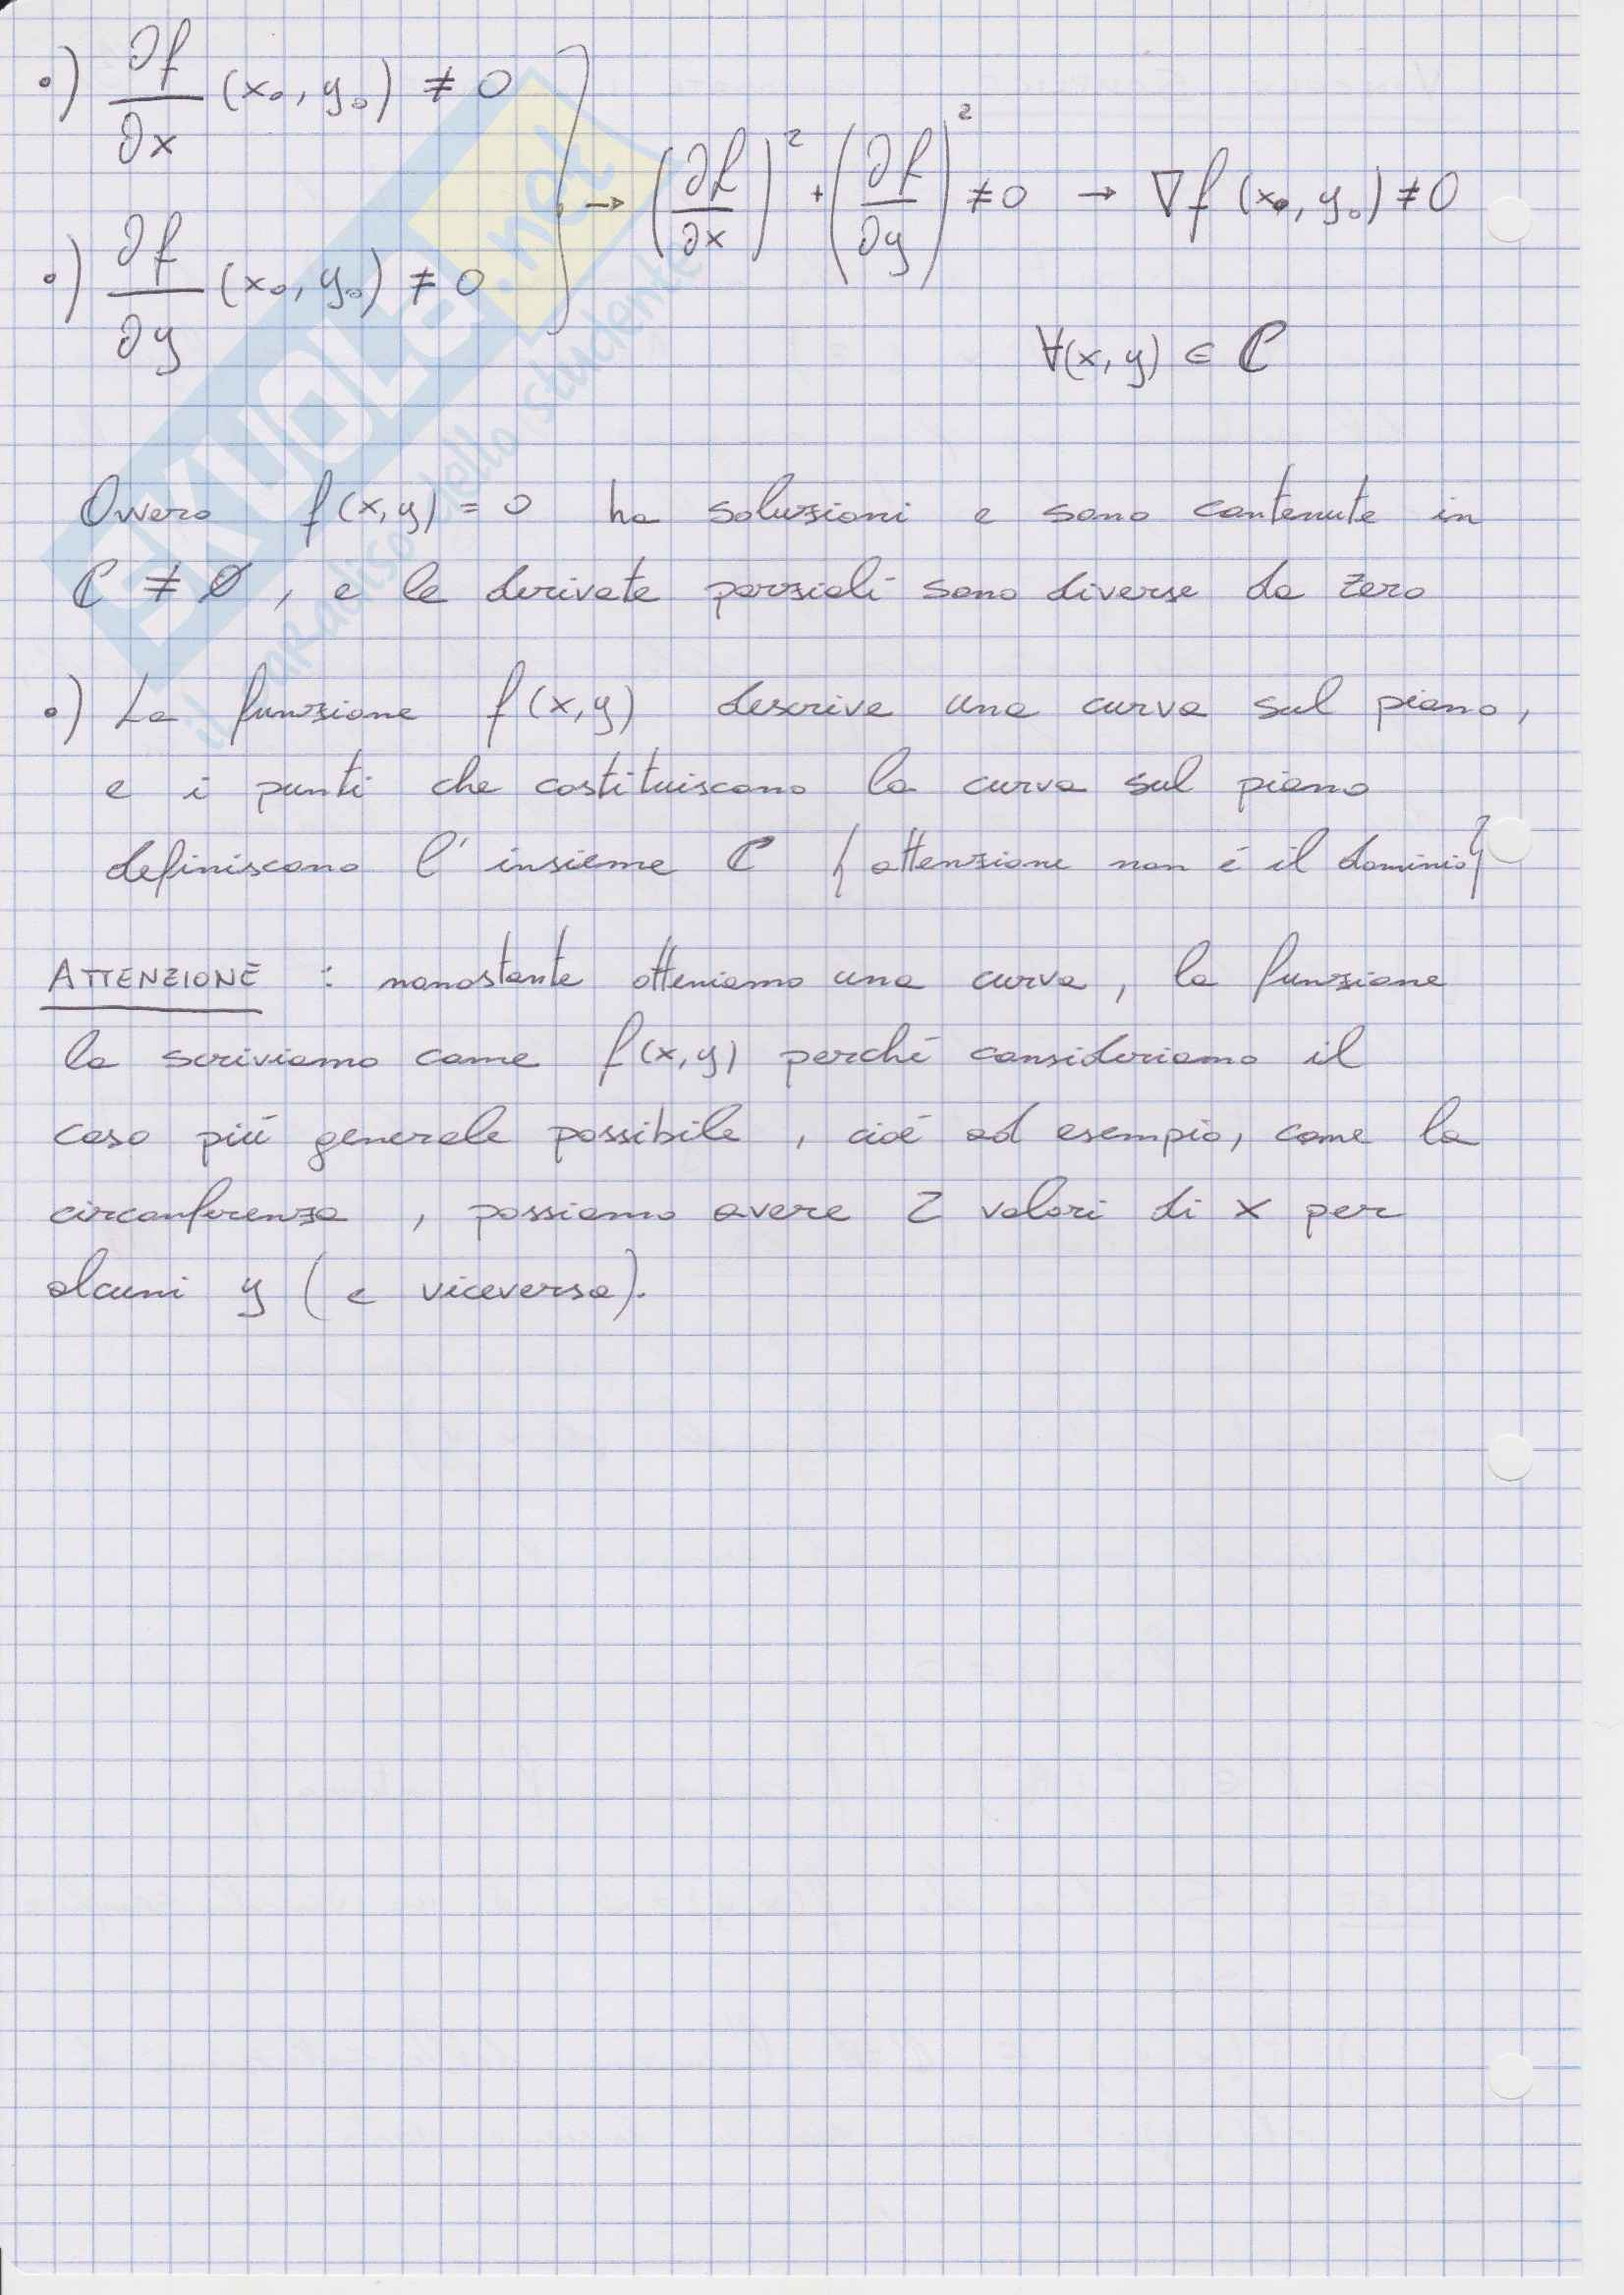 •) ∂f/∂x (x₀, y₀) ≠ 0
•) ∂f/∂y (x₀, y₀) ≠ 0
→ (∂f/∂x)² + (∂f/∂y)² ≠ 0 → ∇f (x₀, y₀) ≠ 0
∀(x, y) ∈ C
Ovvero f(x,y) = 0 ha soluzioni e sono contenute in
C ≠ Ø, e le derivate parziali sono diverse da zero
•) La funzione f(x,y) descrive una curva sul piano,
e i punti che costituiscono la curva sul piano
definiscono l'insieme C {attenzione non é il dominio}
ATTENZIONE : nonostante otteniamo una curva, la funzione
la scriviamo come f(x,y) perché consideriamo il
caso piú generale possibile, cioé ad esempio, come la
circonferenza, possiamo avere 2 valori di x per
alcuni y (e viceversa).
SKUOLA.net
il paradiso dello studente